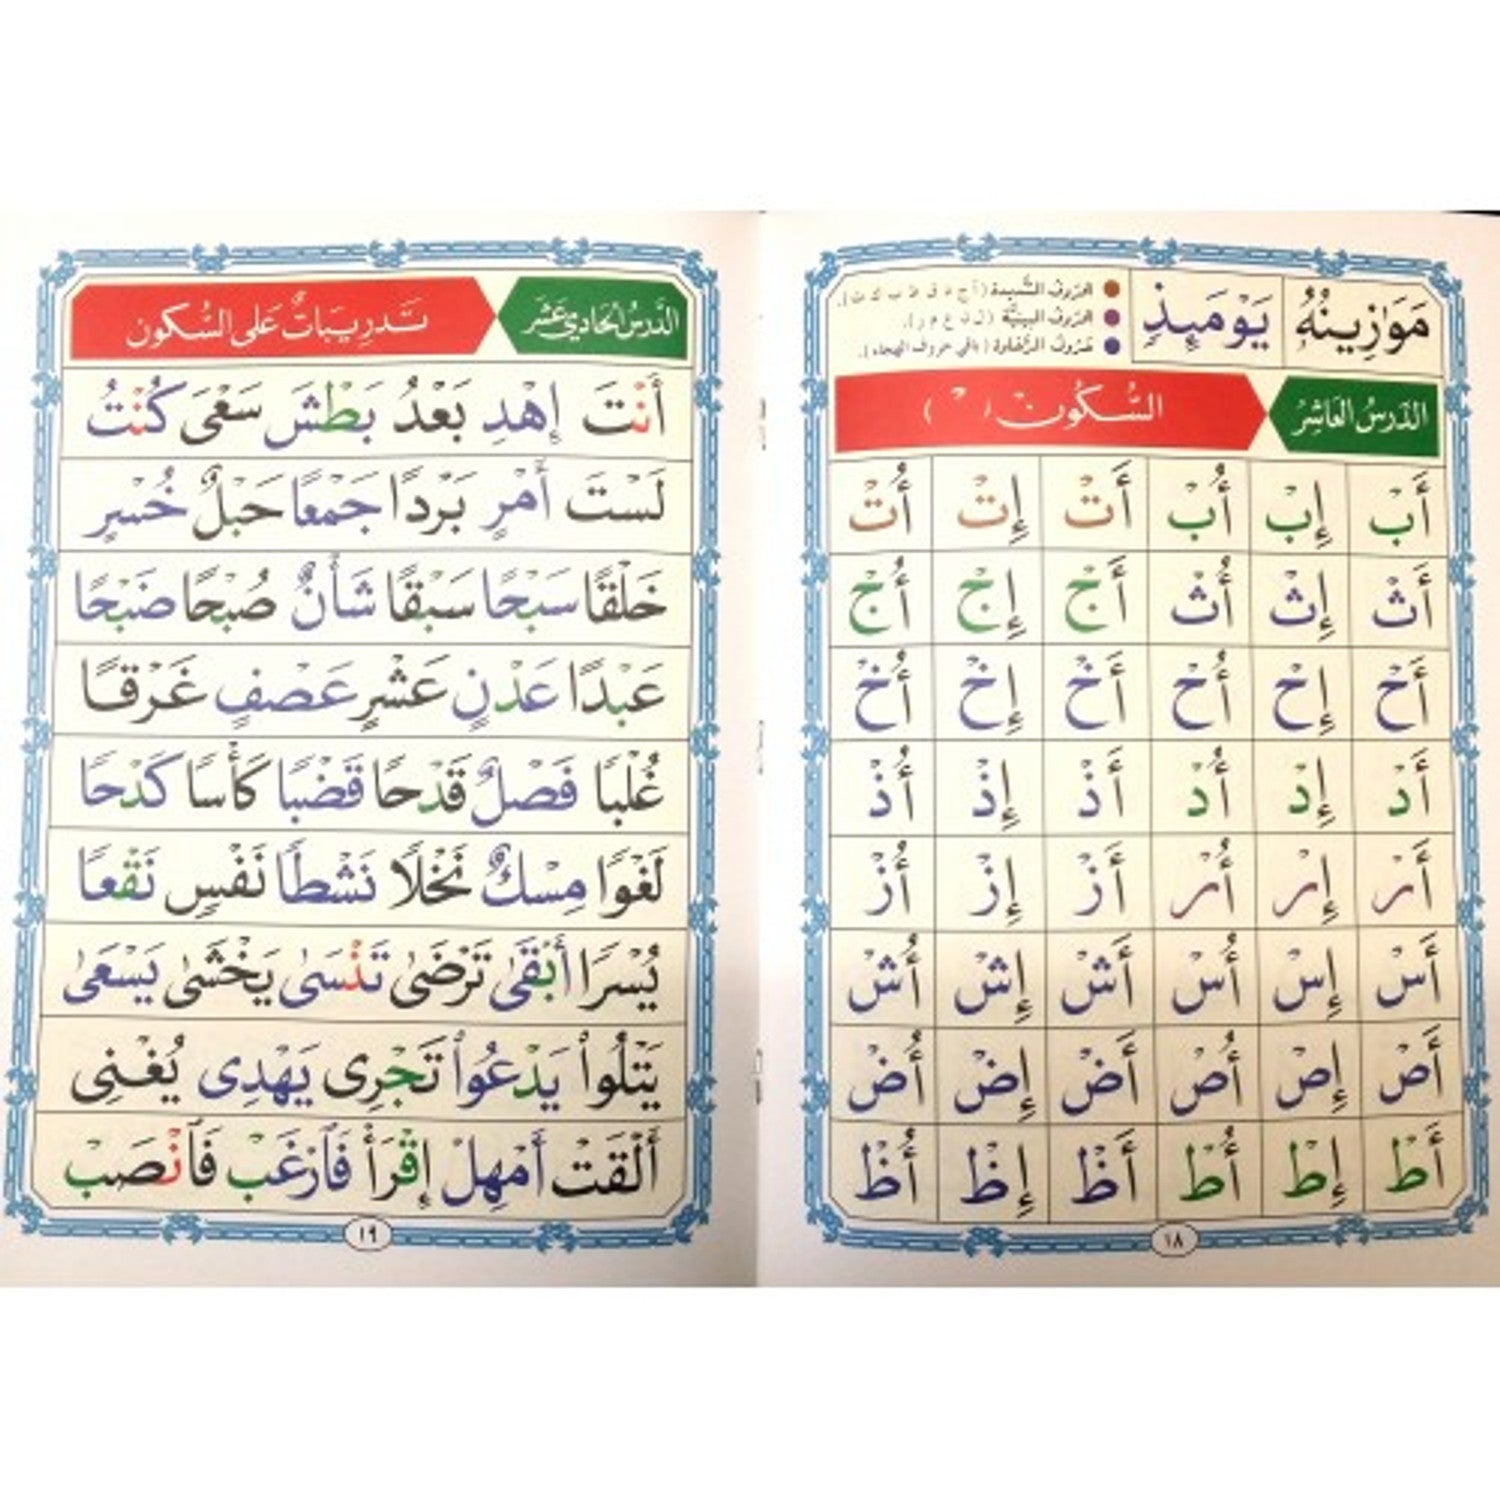 مَوَٰزِينُهُۥ يَوْمَئِذٍ
الحروف الشديدة (أ ج د ق ط ب ك ت).
الحروف البينيَّة (ل ن ع م ر).
حروف الرخاوة (باقي حروف الهجاء).
الدَّرسُ العَاشِرُ السُّكُونْ ( ْ )
أَبْ إِبْ أُبْ أَتْ إِتْ أُتْ
أَثْ إِثْ أُثْ أَجْ إِجْ أُجْ
أَحْ إِحْ أُحْ أَخْ إِخْ أُخْ
أَدْ إِدْ أُدْ أَذْ إِذْ أُذْ
أَرْ إِرْ أُرْ أَزْ إِزْ أُزْ
أَسْ إِسْ أُسْ أَشْ إِشْ أُشْ
أَصْ إِصْ أُصْ أَضْ إِضْ أُضْ
أَطْ إِطْ أُطْ أَظْ إِظْ أُظْ
١٨
الدَّرسُ الحَادِي عَشَرَ تَدرِيبَاتٌ عَلى السُّكون
أَنْتَ إِهْدِ بَعْدُ بَطْشَ سَعْىَ كُنْتُ
لَسْتَ أَمْرٍ بَرْدًا جَمْعًا حَبْلٌ خُسْرٍ
خَلْقًا سَبْحًا سَبْقًا شَأْنٌ صُبْحًا ضَبْحًا
عَبْدًا عَدْنٍ عَشْرٍ عَصْفٍ غَرْقًا
غُلْبًا فَصْلٌ قَدْحًا قَضْبًا كَأْسًا كَدْحًا
لَغْوًا مِسْكٌ نَخْلًا نَشْطًا نَفْسٍ نَقْعًا
يُسْرًا أَبْقَىٰ تَرْضَىٰ تَنْسَىٰ يَخْشَىٰ يَسْعَىٰ
يَتْلُوا۟ يَدْعُوا۟ تَجْرِى يَهْدِى يُغْنِى
أَلْقَتْ أَمْهِلْ إِقْرَأْ فَٱرْغَبْ فَٱنْصَبْ
١٩